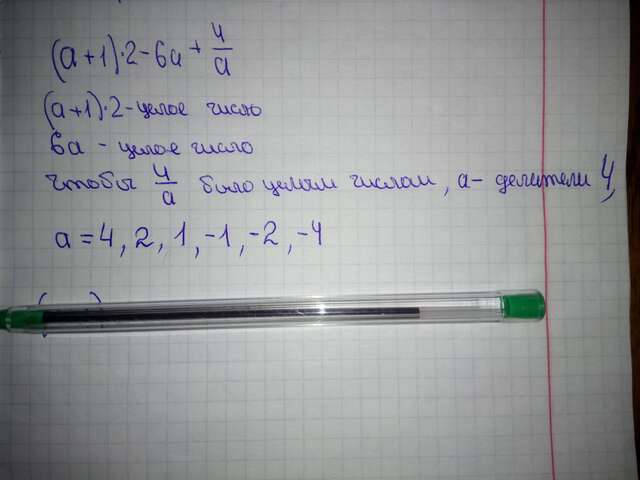 (a+1)·2-6a+4/a
(a+1)·2-целое число
6a - целое число
чтобы 4/a было целым числом, a- делители 4,
a=4, 2, 1, -1, -2, -4